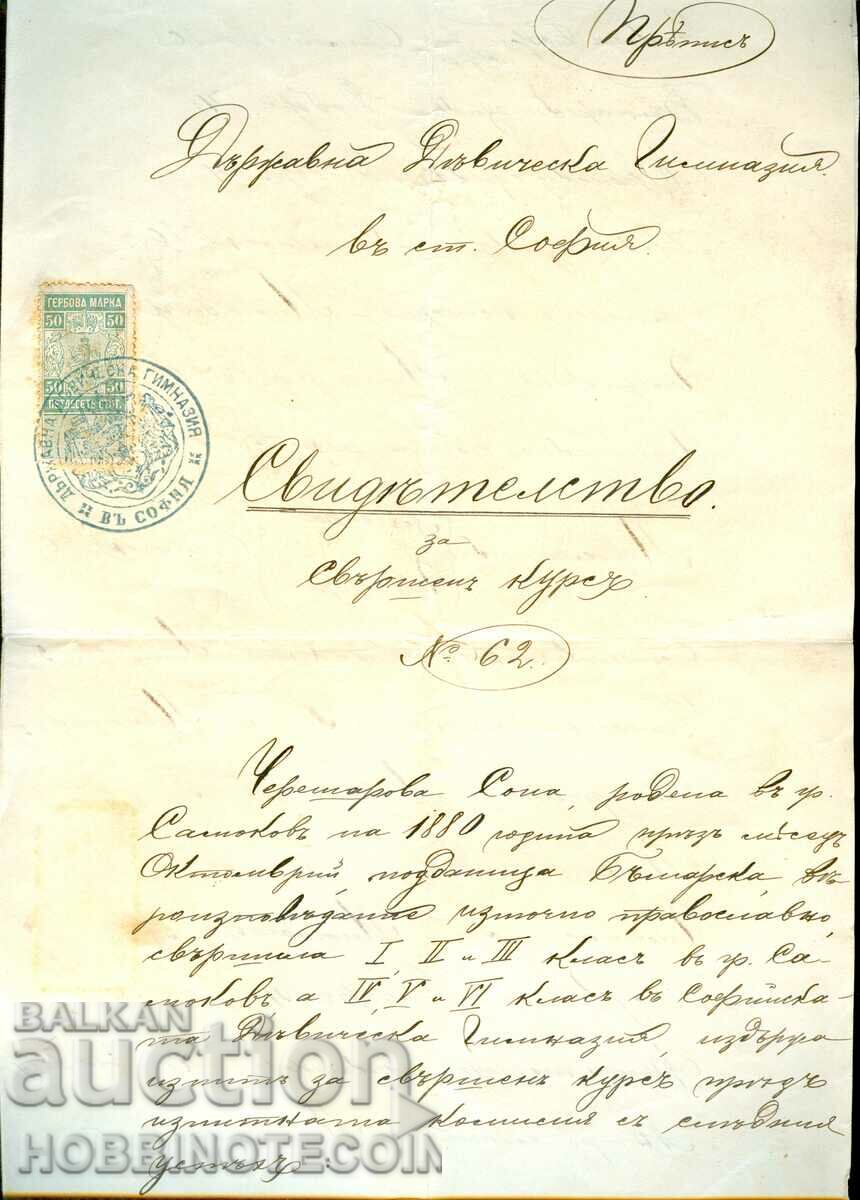 Прѣпис
Държавна Дѣвическа Гимназия.
въ ст. София.
ГЕРБОВА МАРКА
50 50
50 50
ПЕТДЕСЕТЬ СТОТ.
ДЪРЖАВНА ДѢВИЧЕСКА ГИМНАЗИЯ
ВЪ СОФИЯ
Свидѣтелство.
за
свършенъ курсъ
№ 62.
Черешарова Сона, родена въ гр.
Самоковъ на 1880 година прѣзъ мѣсецъ
Октомврий, подданица Българска, вѣ
роизповѣдание източно православно,
свършила I, II и III класъ въ гр. Са-
моковъ а IV, V и VI класъ въ Софийска-
та Дѣвическа Гимназия, издържа
изпитъ за свършенъ курсъ прѣдъ
изпитната комисия съ слѣдния
успѣхъ:
BALKAN
auction
HOBBINOTECOIN